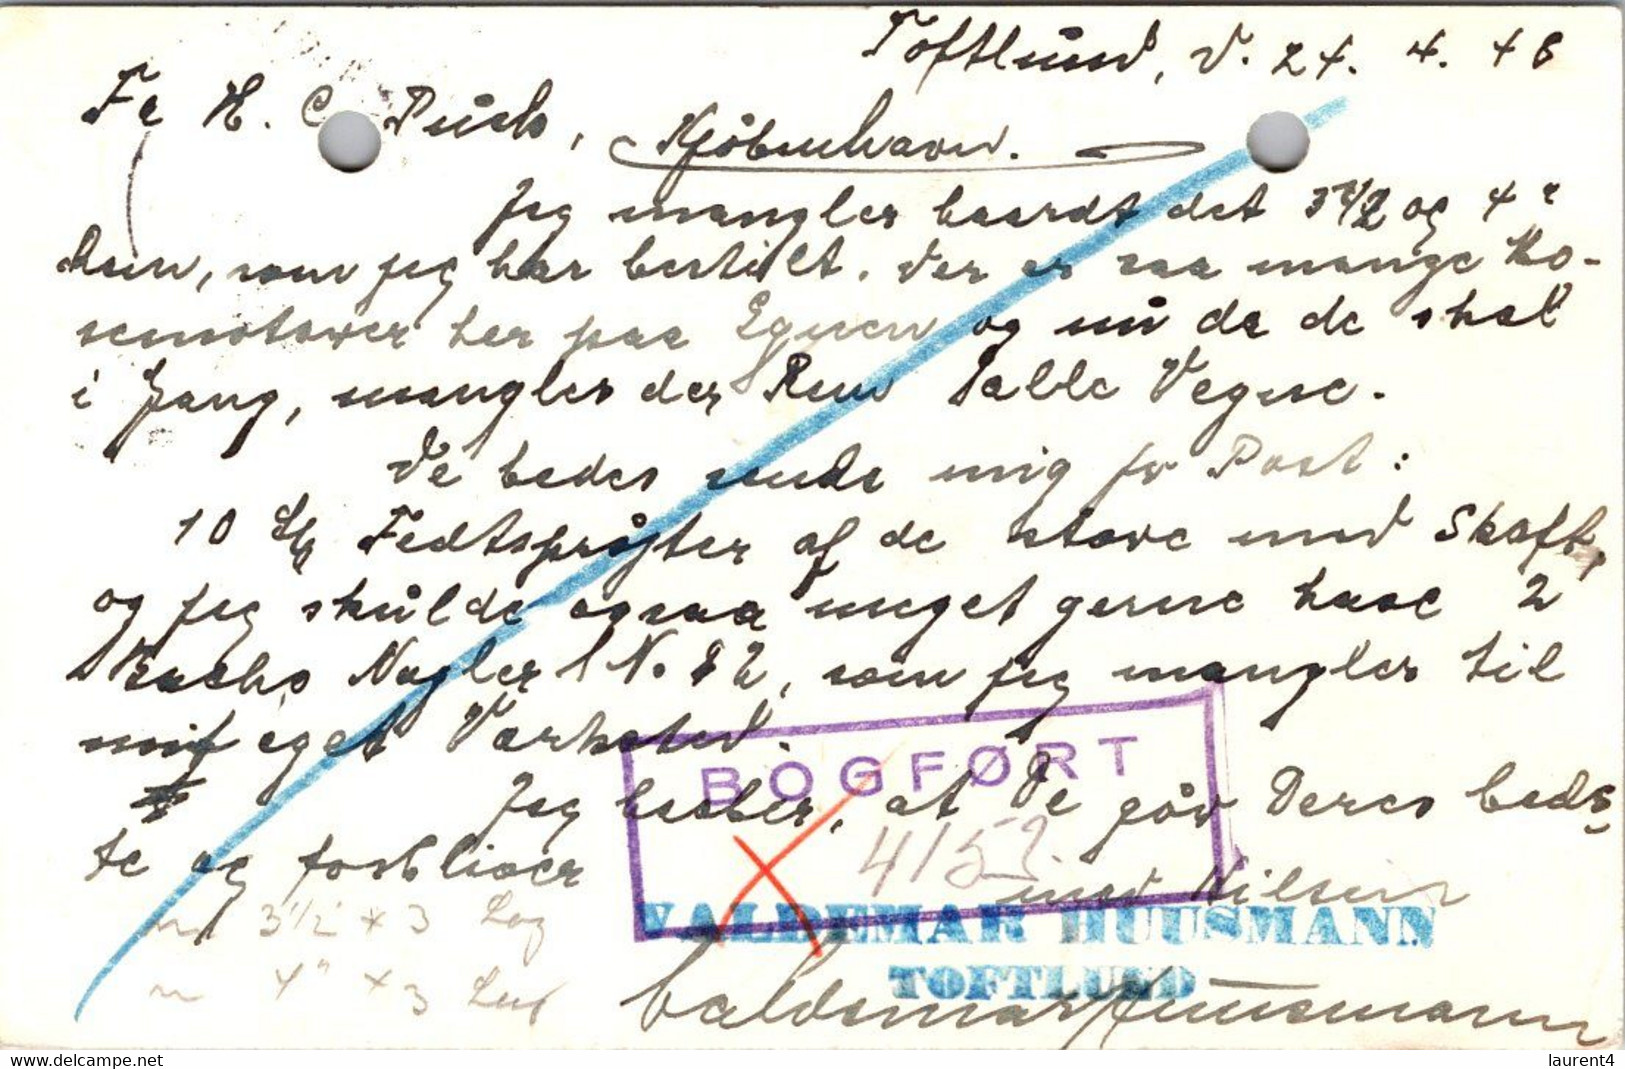 Toftlund, d. 24. 4. 46
Fa H. C. Puch,
Kjøbenhavn.
Jeg mangler haardt det 3 1/2 og 4"
som jeg har bestilt. Der er saa mange Ko-
her paa Egnen og nu da de skal
i Gang, mangler der Rør Vegne.
De bedes sende mig pr Post:
10 Stk Fedtsprøjter af de store med Skaft,
og jeg skulde ogsaa meget gerne have 2
Nagler No 82, som jeg mangler til
mit eget Værksted.
Jeg haaber, at De gør Deres beds-
te og forbliver
med Hilsen
BOGFØRT
4/5
3 1/2" x 3
4" x 3
VALDEMAR HUUSMANN
TOFTLUND
Valdemar Huusmann
laurent4